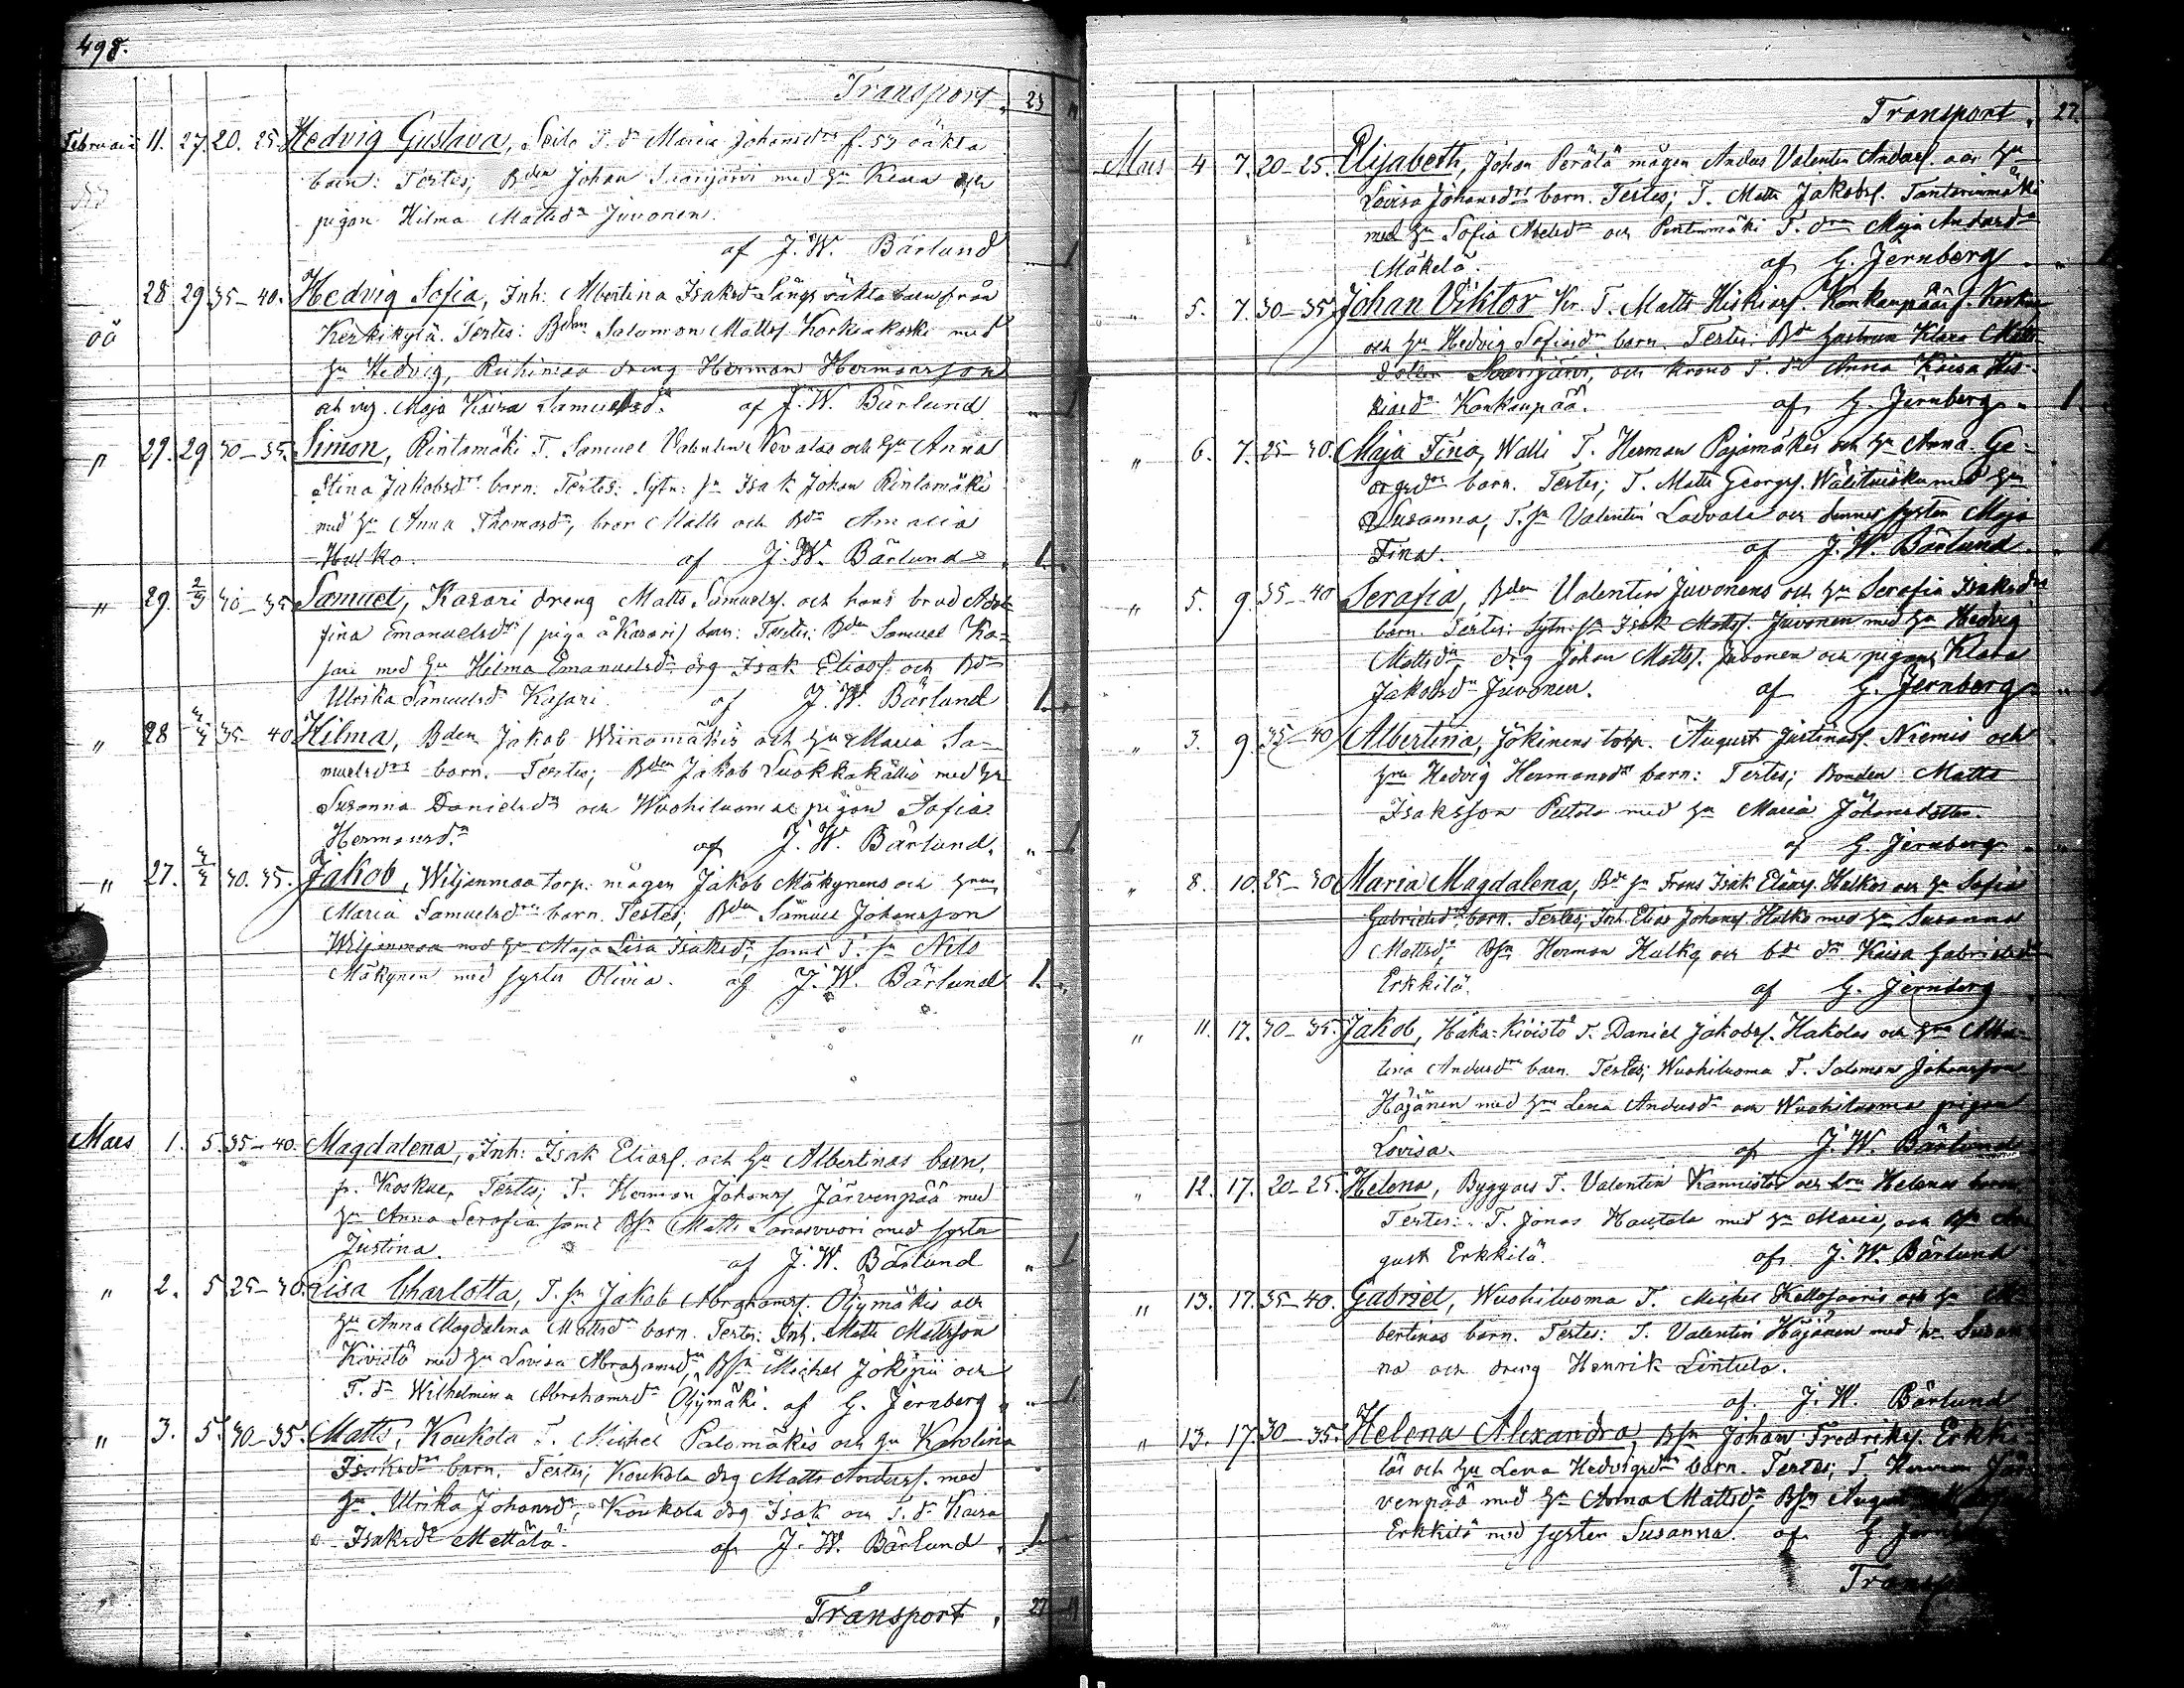 498.
Transport 23
Februarii 11. 27. 20. 25. Hedvig Gustava, T. dr Maria Johansdrs f. 53 oäkta
barn: Testes; Bden Johan Saarijärvi med hu Klara och
pigan Hilma Mattsdr Juvonen.
af J. W. Bärlund 1
28 29 35-40. Hedvig Sofia, Inh: Albertina Isaksdr Långs oäkta barn från
oä Kerkikylä. Testes: Bden Salomon Mattss. Korkiakoski med
hu Hedvig, Riihimaa dreng Herman Hermansson
och Maja Kaisa Samuelsdr. af J. W. Bärlund 1
" 29. 29 30-35. Simon, Rintamäki T. Samuel Valentin Nevalas och hu Anna
Stina Jakobsdrs barn. Testes: Sytn: sn Isak Johan Rintamäki
med hu Anna Thomasdr, bror Matts och Bdr Amalia
Hulko. af J. W. Bärlund 1.
" 29. 2/3 30-35 Samuel, Kasari dreng Matts Samuelss. och hans brud Adol-
fina Emanuelsdrs (piga å Kasari) barn: Testes: Bden Samuel Ka-
sari med hu Hilma Emanuelsdr drg Isak Eliass. och Bdr
Ulrika Samuelsdr Kasari. af J. W. Bärlund 1.
" 28 35-40 Hilma, Bden Jakob Wiinamäkis och hu Maria Sa-
muelsdrs barn. Testes; Bden Jakob Luokkakallio med hu
Susanna Danielsdr och Wuohiluoma pigan Sofia
Hermansdr af J. W. Bärlund. " 1
" 27. 30. 35. Jakob, Wiljanmaa torp. mågen Jakob Mäkynens och hrus
Maria Samuelsdrs barn. Testes; Bden Samuel Johansson
Wiljanmaa med hu Maja Lisa Isaksdr, samt T. sn Nilo
Mäkynen med syster Olivia. af J. W. Bärlund 1.
Mars 1. 5. 35-40. Magdalena, Inh: Isak Eliass. och hu Albertinas barn,
fr. Koskue, Testes; T. Herman Johanss Järvenpää med
hu Anna Serafia samt Bsn Matts Sanasvuori med syster
Justina. af J. W. Bärlund " 1
" 2. 5 25-30. Lisa Charlotta, T. sn Jakob Abrahamss. Öljymäkis och
hu Anna Magdalena Mattsdr barn. Testes: Inh. Matts Mattsson
Kivistö med hu Lovisa Abrahamsdr, Bsn Michel Jokipii och
T. dr Wilhelmina Abrahamsdr Öljymäki. af G. Jernberg " 1
" 3. 5. 30-35. Matts, Koukola T. Michel Palomäkis och hu Karolina
Isaksdrs barn. Testes; Koukola drg Matts Anderss. med
hu. Ulrika Johansdr, Koukola drg Isak och T. dr Kaisa
Isaksdr Mettälä. af J. W. Bärlund 1
Transport 27
Transport 27.
Mars 4 7. 20-25. Elisabeth, Johan Perälä mågen Anders Valentin Anderss. och hu
Lovisa Johansdrs barn. Testes; T. Matts Jakobss. Tantarinmäki
med hu Sofia Abelsdr och Pentinmäki T. drn Maja Andersdr
Mäkelä. af G. Jernberg
" 5. 7. 30-35. Johan Viktor Kr. T. Matts Hiskiass. Kankaanpääs fr. Koskue
och hu Hedvig Sofiasdr barn. Testes: Bde hustrun Klara Matts-
dotter Saarijärvi, och krono T. dr Anna Kaisa His-
kiasdr Kankanpää. af G. Jernberg 1.
" 6. 7. 25-30. Maja Fina, Walli T. Herman Pajamäkis och hu Anna Ge-
orgsdrs barn. Testes; T. Matts Georgss. Wälituisku med hu
Susanna, T. sn Valentin Ladvala och dennes syster Maja
Fina. af J. W. Bärlund
" 5. 9 35-40 Serafia, Bden Valentin Juvonens och hu Serafia Isaksdrs
barn. Testes: Sytn: sn Isak Mattss. Juvonen med hu Hedvig
Mattsdr, drg Johan Mattss. Juvonen och pigan Klara
Jakobsdr Juvonen. af G. Jernberg
" 3. 9 35-40 Albertina, Jokinens torp. August Justinass. Niemis och
hru Hedvig Hermansdrs barn: Testes; Bonden Matts
Isaksson Peltola med hu Maria Johansdotter.
af G. Jernberg
" 8. 10. 25-30 Maria Magdalena, Bde sn Frans Isak Eliass. Hulkos och hu Sofia
Gabrielsdrs barn. Testes; Inh. Elias Johanss. Hulko med hu Susanna
Mattsdr, Bsn Herman Hulko och bde drn Kaisa Gabrielsdr
Erkkilä. af G. Jernberg
" 11. 17. 30-35. Jakob, Haka-Kivistö T. Daniel Jakobss. Hakolas och hru Alber-
tina Andersdrs barn. Testes; Wuohiluoma T. Salomon Johansson
Häjänen med hru Lena Andersdr och Wuohiluoma pigan
Lovisa. af J. W. Bärlund
" 12. 17. 20-25. Helena, Byggars T. Valentin Kannistos och hru Helenas barn.
Testes: T. Jonas Hautala med hu Maria, och Bsn Au-
gust Erkkilä. af J. W. Bärlund
" 13. 17. 35-40. Gabriel, Wuohiluoma T. Michel Kellosaaris och hu Al-
bertinas barn. Testes: T. Valentin Häjänen med hu Susan-
na och dreng Henrik Lintula.
af J. W. Bärlund
" 13. 17. 30-35. Helena Alexandra, Bsn Johan Fredrikss. Erkki-
läs och hu Lena Hedvigsdrs barn. Testes; T. Herman Jär-
venpää med hu Anna Mattsdr Bsn August
Erkkilä med syster Susanna. af G.